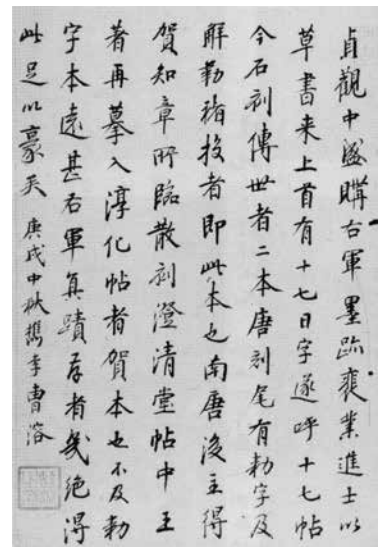 貞觀中遂購右軍墨跡裴業進士以
草書来上首有十七日字遂呼十七帖
今石刻傳世者二本唐刻尾有勅字及
解勤禇挍者即此本也南唐後主得
賀知章所臨散刻澄清堂帖中王
著再摹入淳化帖者賀本也不及勅
字本遠甚右軍真蹟存者幾絶得
此足以豪矣庚戌中秋檇李曹溶